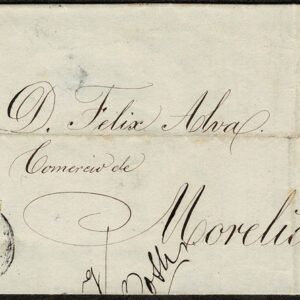 D. Felix Alva.
Comercio de
Morelia